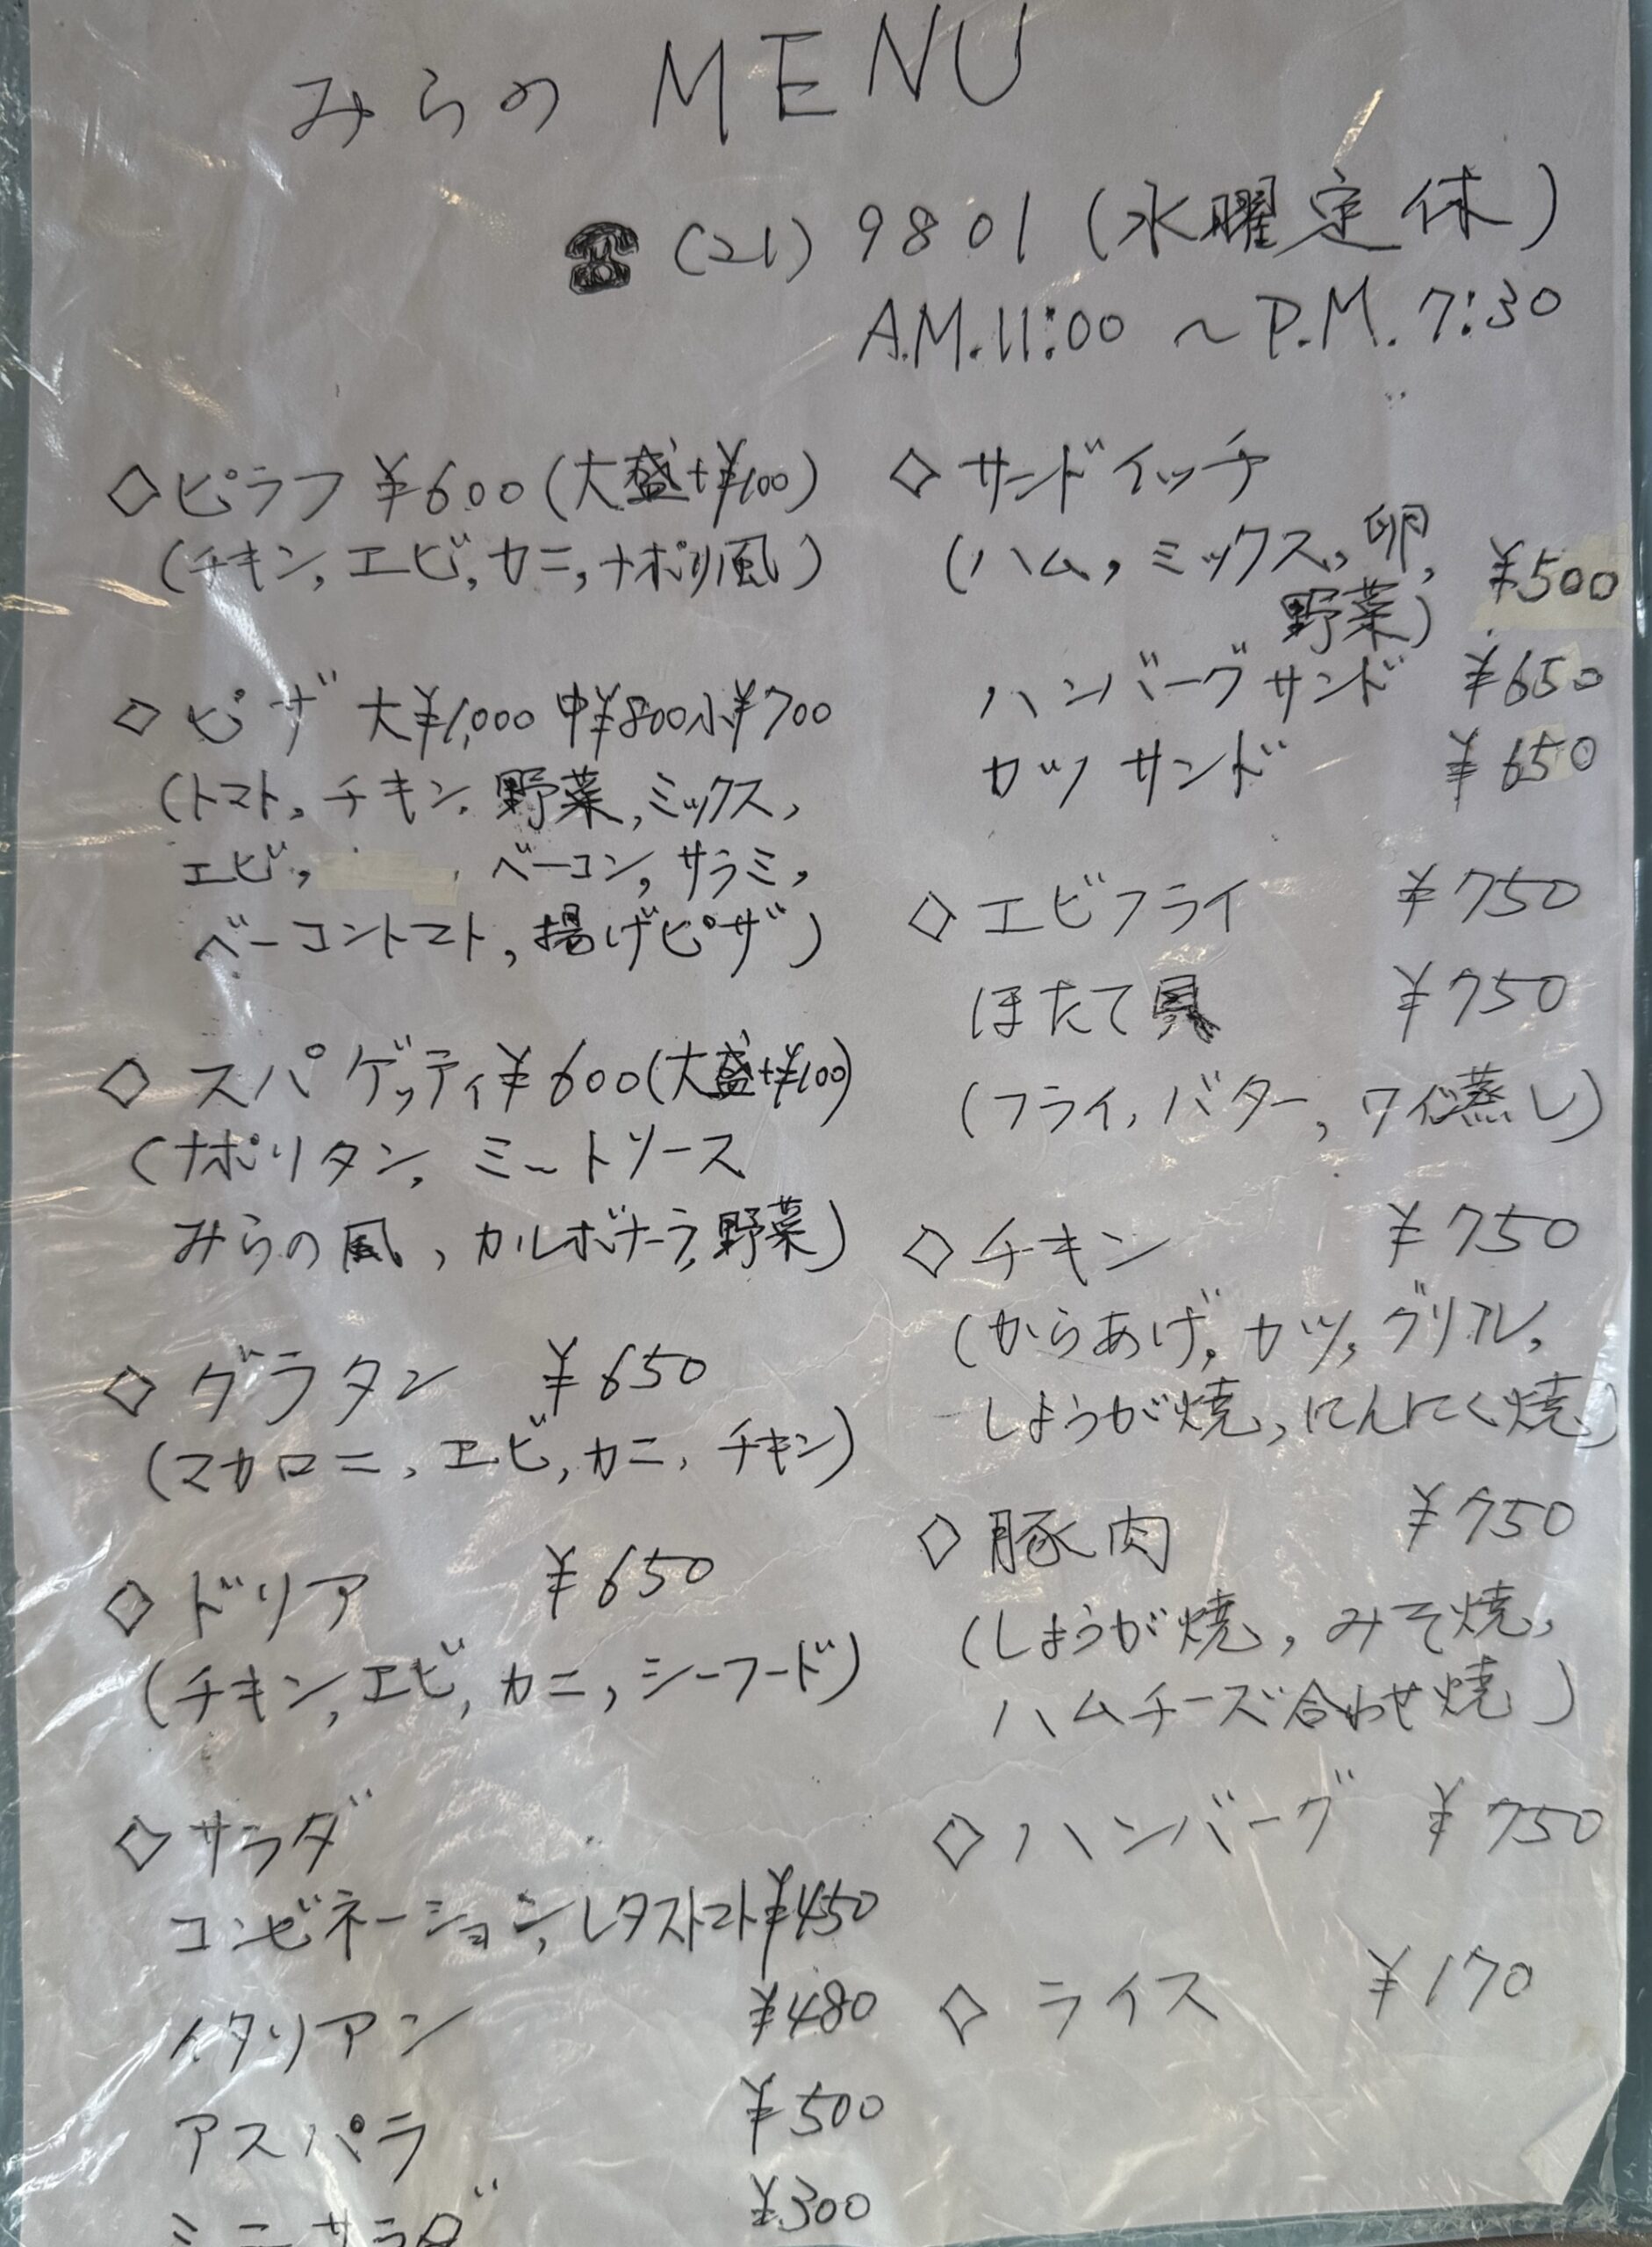 みらの MENU
☎ (21) 9801 (水曜定休)
A.M.11:00 ～ P.M. 7:30
◇ピラフ ¥600 (大盛+¥100)
(チキン, エビ, カニ, ナポリ風)
◇ピザ 大¥1,000 中¥800 小¥700
(トマト, チキン, 野菜, ミックス,
エビ, , ベーコン, サラミ,
ベーコントマト, 揚げピザ)
◇スパゲッティ ¥600 (大盛+¥100)
(ナポリタン, ミートソース
みらの風, カルボナーラ, 野菜)
◇グラタン ¥650
(マカロニ, エビ, カニ, チキン)
◇ドリア ¥650
(チキン, エビ, カニ, シーフード)
◇サラダ
コンビネーション, レタストマト ¥450
イタリアン ¥480
アスパラ ¥500
ミニサラダ ¥300
◇サンドイッチ
(ハム, ミックス, 卵,
野菜) ¥500
ハンバーグサンド ¥650
カツサンド ¥650
◇エビフライ ¥750
ほたて貝 ¥750
(フライ, バター, ワイン蒸し)
◇チキン ¥750
(からあげ, カツ, グリル,
しょうが焼, にんにく焼)
◇豚肉 ¥750
(しょうが焼, みそ焼,
ハムチーズ合わせ焼)
◇ハンバーグ ¥750
◇ライス ¥170